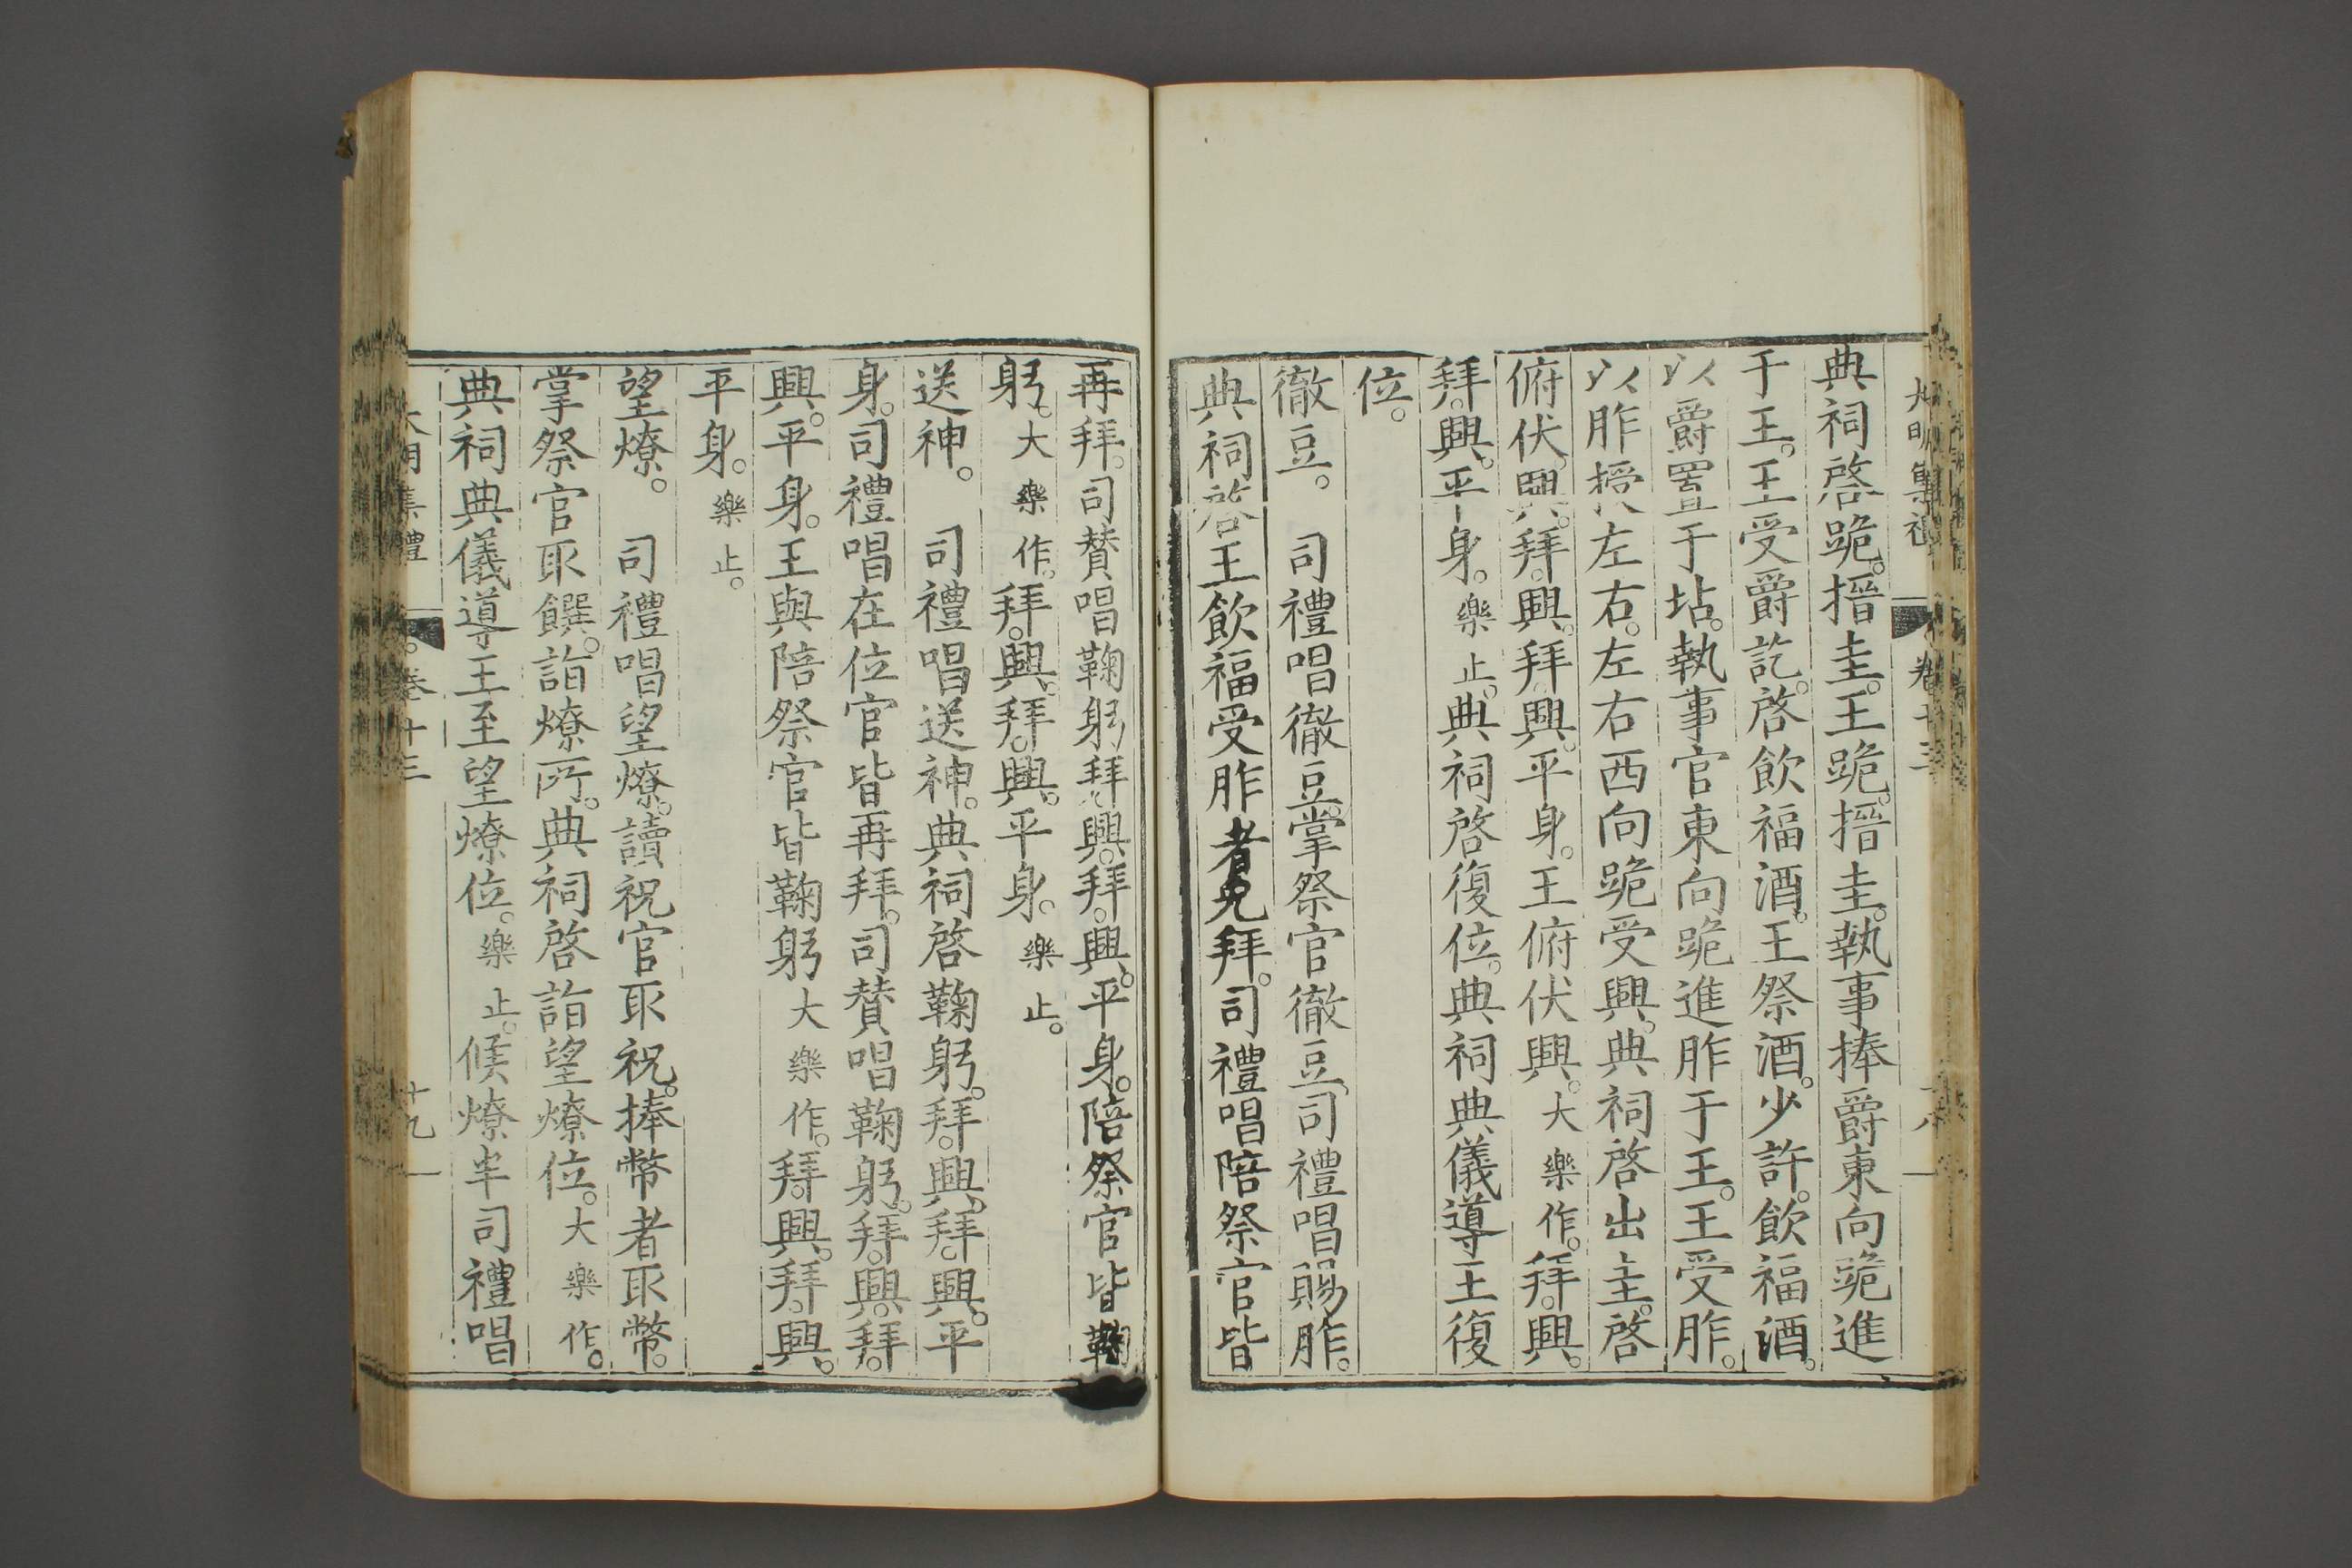 典祠啓跪。搢圭。王跪。搢圭。執事捧爵東向跪進
于王。王受爵訖。啓飲福酒。王祭酒。少許。飲福酒。
以爵置于坫。執事官東向跪進胙于王。王受胙。
以胙授左右。左右西向跪受興。典祠啓出圭。啓
俯伏。興。拜。興。拜。興。平身。王俯伏興。大樂作。拜。興。
拜。興。平身。樂止。典祠啓復位。典祠典儀導王復
位。
徹豆。　司禮唱徹豆。掌祭官徹豆。司禮唱賜胙。
典祠啓王飲福受胙者免拜。司禮唱陪祭官皆
再拜。司贊唱鞠躬拜。興。拜。興。平身。陪祭官皆鞠
躬。大樂作。拜。興。拜。興。平身。樂止。
送神。　司禮唱送神。典祠啓鞠躬。拜。興。拜。興。平
身。司禮唱在位官皆再拜。司贊唱鞠躬。拜。興。拜。
興。平身。王與陪祭官皆鞠躬大樂作。拜。興。拜。興。
平身。樂止。
望燎。　司禮唱望燎。讀祝官取祝。捧幣者取幣。
掌祭官取饌。詣燎所。典祠啓詣望燎位。大樂作。
典祠典儀導王至望燎位。樂止。候燎半司禮唱
大明集禮　卷十三　十九